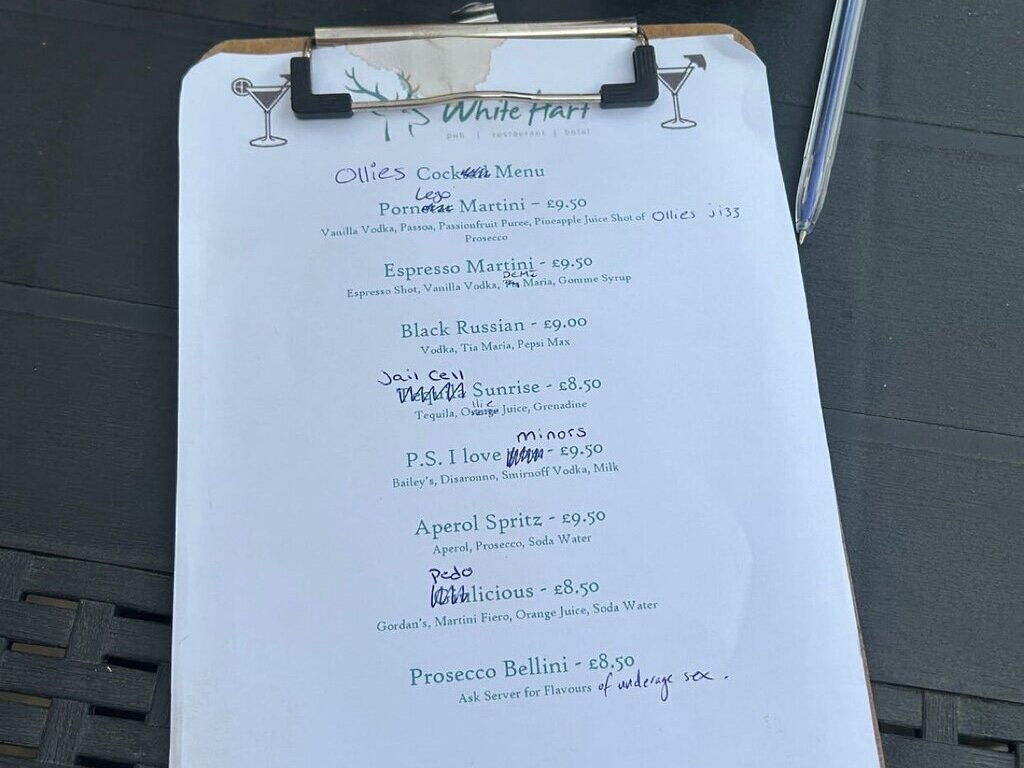 White Hart
pub | restaurant | hotel
Ollies Cock Menu
Lego
Porn Martini – £9.50
Vanilla Vodka, Passoa, Passionfruit Puree, Pineapple Juice Shot of Ollies jizz
Prosecco
Espresso Martini - £9.50
Espresso Shot, Vanilla Vodka, Maria, Gomme Syrup
Black Russian - £9.00
Vodka, Tia Maria, Pepsi Max
Jail Cell
Sunrise - £8.50
llie
Tequila, O Juice, Grenadine
minors
P.S. I love - £9.50
Bailey's, Disaronno, Smirnoff Vodka, Milk
Aperol Spritz - £9.50
Aperol, Prosecco, Soda Water
Pedo
licious - £8.50
Gordan's, Martini Fiero, Orange Juice, Soda Water
Prosecco Bellini - £8.50
Ask Server for Flavours of underage sex.